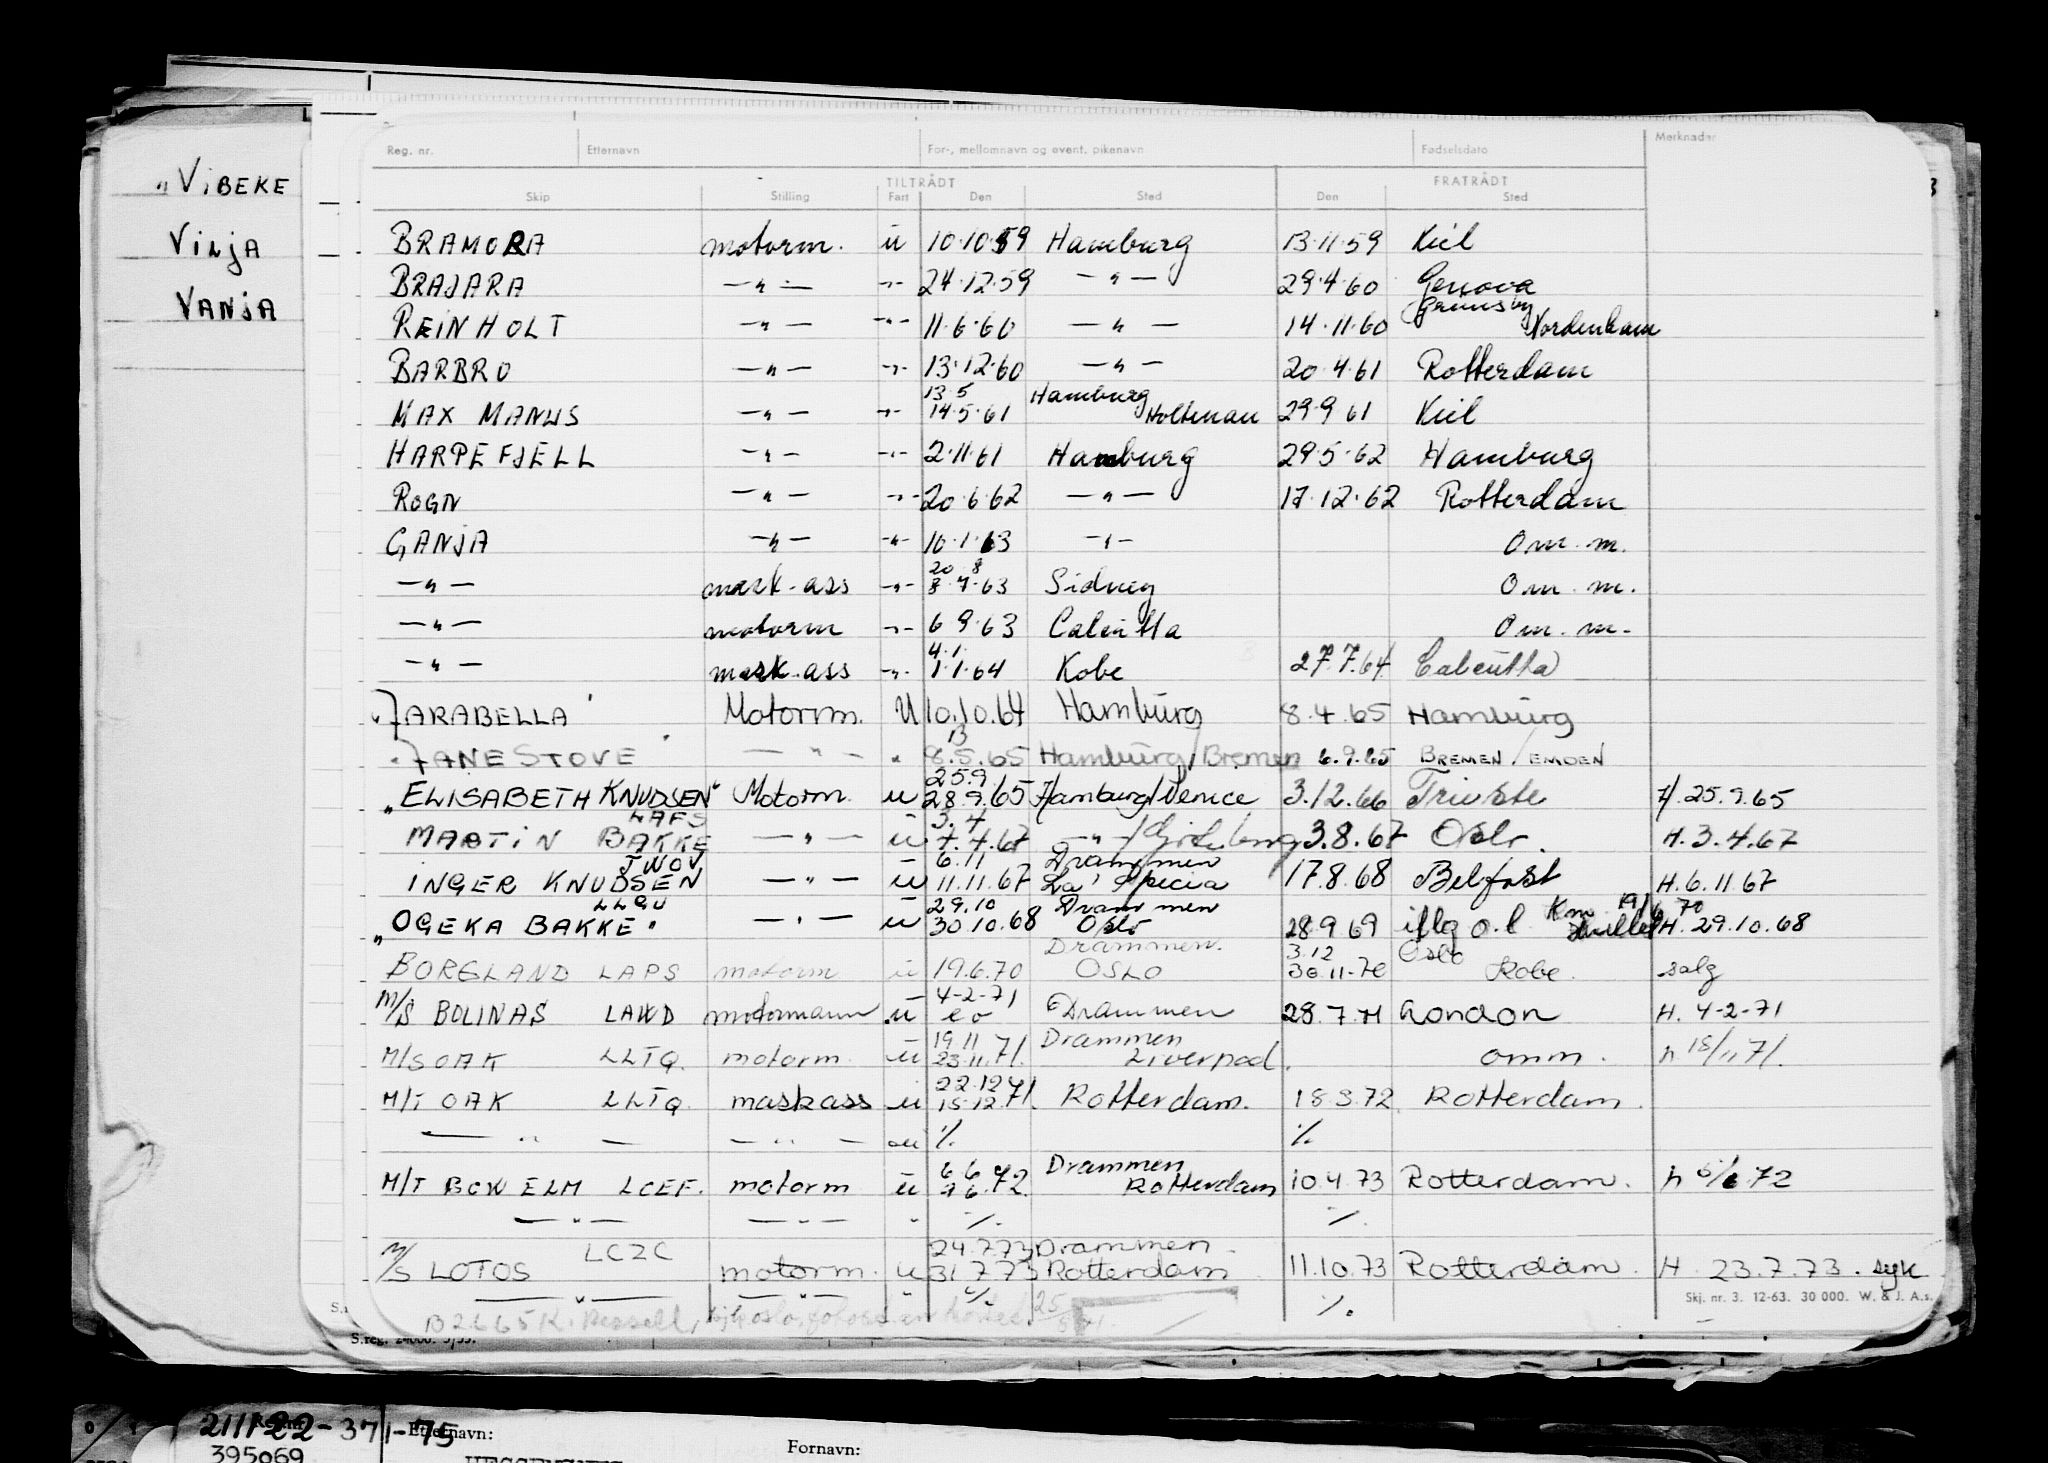 "VIBEKE
VILJA
VANJA
Reg. nr. Etternavn For-, mellomnavn og event. pikenavn Fødselsdato Merknader
TILTRÅDT FRATRÅDT
Skip Stilling Fart Den Sted Den Sted
BRAMORA motorm. u 10.10.59 Hamburg 13.11.59 Kiel
BRAJARA —"— -"- 24.12.59 —"— 29.4.60 Genova
REINHOLT —"— -"- 11.6.60 —"— 14.11.60 Grimsby Nordenham
BARBRO —"— -"- 13.12.60 —"— 20.4.61 Rotterdam
13 5 Hamburg
MAX MANUS —"— -"- 14.5.61 Holtenau 29.9 61 Kiel
HARPEFJELL —"— -"- 2.11.61 Hamburg 29.5.62 Hamburg
ROGN —"— -"- 20.6.62 —"— 17.12.62 Rotterdam
GANJA —"— -"- 10.1.63 —"— Om. m.
20 8
—"— mask-ass -"- 8.7.63 Sidney Om. m.
—"— motorm -"- 6 9.63 Calcutta Om. m.
4.1.
—"— mask-ass -"- 1.1.64 Kobe 27.7.64 Calcutta
"JARABELLA" Motorm. U 10.10.64 Hamburg 8.4.65 Hamburg
13
"JANE STOVE" —"— " 8.5.65 Hamburg/Bremen 6.9.65 BREMEN/EMDEN
25.9
"ELISABETH KNUDSEN" Motorm. u 28.9.65 Hamburg/Venice 3.12.66 Trieste H. 25.9.65
LAFS 3.4
MARTIN BAKKE —"— u 7.4.67 —"—/Göteborg 3.8.67 Oslo. H. 3.4.67
JWOV 6.11 Drammen
INGER KNUDSEN —"— u 11.11.67 La Spezia 17.8.68 Belfast H. 6.11 67
LLGU 29.10 Drammen
"OGEKA BAKKE" —"— u 30.10.68 Oslo 28.9 69 iflg o.l H. 29.10.68
Drammen. 3.12 Oslo
BORGLAND LAPS motorm u 19.6.70 OSLO 30.11-70 Kobe. salg
4-2-71
M/S BOLINAS LAWD motormann u eo Drammen 28.7.71 London H. 4-2-71
19 11 Drammen
M/S OAK LLTQ. motorm u 23.11.71. Liverpool. omm. h 18/11 71.
22.12
M/T OAK LLTQ. maskass u 15.12.71. Rotterdam. 18 3.72. Rotterdam.
—"— —"— ou %. %.
6 6 Drammen
M/T BOW ELM LCEF. motorm u 9 6.72. Rotterdam 10.4.73 Rotterdam. h 5/6 72
—"— —"— " %. %.
LCZC 24.7.73 Drammen
M/S LOTOS motorm. u 31.7.73 Rotterdam 11.10.73 Rotterdam. H 23.7.73. syk
—"— —"— " %. %.
Skj. nr. 3. 12-63. 30 000. W. & J. A.s.
S.reg. 24000. 3/55.
211122-371-75 Etternavn:
395069 Fornavn: